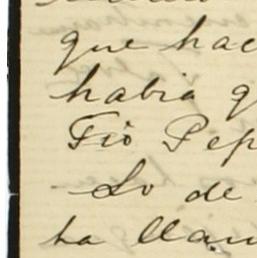 que hac
habia q
Tio Pep
Lo de
ha llam